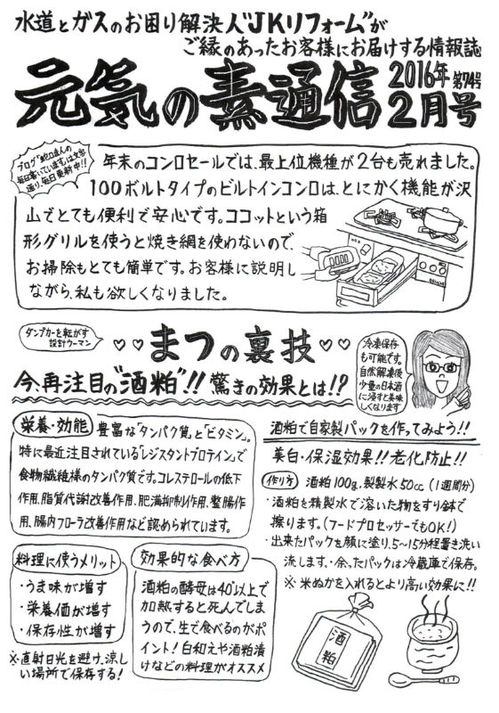 水道とガスのお困り解決人"JKリフォーム"が
ご縁のあったお客様にお届けする情報誌
元気の素通信
2016年 第74号
2月号
ブログ"蛇口まんの
毎日書いています"は文字
通り、毎日更新中!!
年末のコンロセールでは、最上位機種が2台も売れました。
100ボルトタイプのビルトインコンロは、とにかく機能が沢
山でとても便利で安心です。ココットという箱
形グリルを使うと焼き網を使わないので、
お掃除もとても簡単です。お客様に説明し
ながら、私も欲しくなりました。
ダンプカーを転がす
設計ウーマン
♡♡まつの裏技♡♡
今、再注目の"酒粕"!! 驚きの効果とは!?
冷凍保存
も可能です。
自然解凍後
少量の日本酒
に浸すと美味
しくなります
栄養・効能
豊富な「タンパク質」と「ビタミン」。
特に最近注目されている「レジスタントプロテイン」で
食物繊維様のタンパク質です。コレステロールの低下
作用、脂質代謝改善作用、肥満抑制作用、整腸作
用、腸内フローラ改善作用など認められています。
料理に使うメリット
・うま味が増す
・栄養価が増す
・保存性が増す
※直射日光を避け、涼し
い場所で保存する!
効果的な食べ方
酒粕の酵母は40°以上で
加熱すると死んでしま
うので、生で食べるのがポ
イント!白和えや酒粕漬
けなどの料理がオススメ
酒粕で自家製パックを作ってみよう!!
美白・保湿効果!!老化防止!!
作り方 酒粕100g、精製水50cc (1週間分)
・酒粕を精製水で溶いた物をすり鉢で
擦ります。(フードプロセッサーでもOK!)
・出来たパックを顔に塗り、5~15分程置き洗い
流します。・余ったパックは冷蔵庫で保存。
※米ぬかを入れるとより高い効果に!!
酒粕